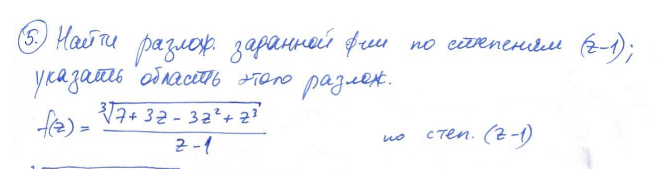 5. Найти разлож. заданной ф-ии по степеням (z-1);
указать область этого разлож.
f(z) = ∛(7+3z-3z²+z³) / (z-1) по степ. (z-1)